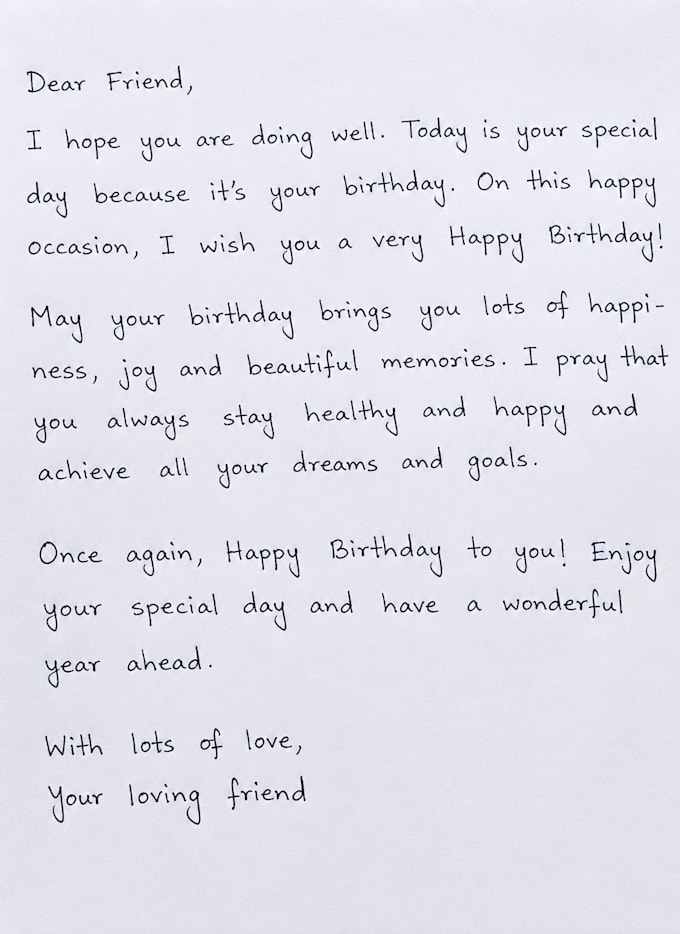 Dear Friend,
I hope you are doing well. Today is your special
day because it's your birthday. On this happy
occasion, I wish you a very Happy Birthday!
May your birthday brings you lots of happi-
ness, joy and beautiful memories. I pray that
you always stay healthy and happy and
achieve all your dreams and goals.
Once again, Happy Birthday to you! Enjoy
your special day and have a wonderful
year ahead.
With lots of love,
Your loving friend